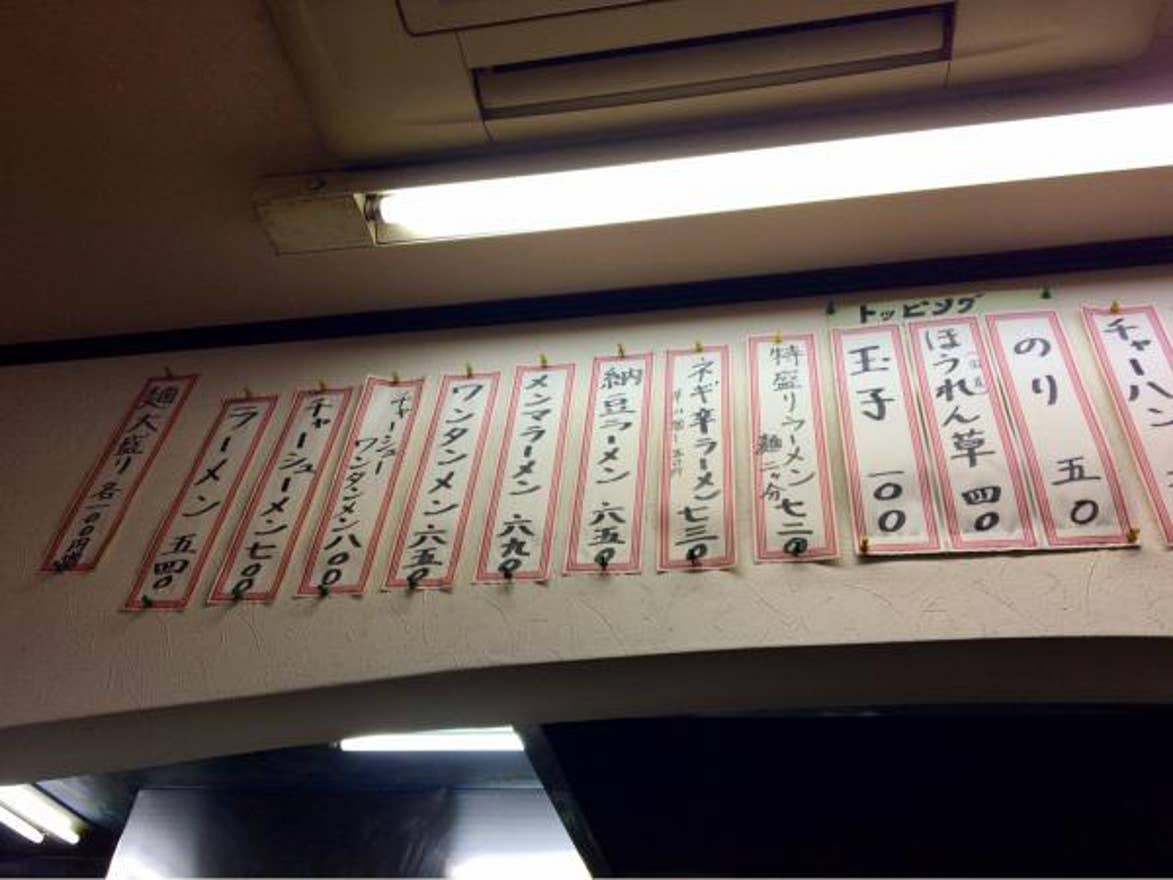 チャーハン
トッピング
のり 五〇
ほうれん草 四〇
玉子 一〇〇
特盛りラーメン 七二〇
麺二ヶ分
ネギ辛ラーメン 七三〇
納豆ラーメン 六五〇
メンマラーメン 六九〇
ワンタンメン 六五〇
チャーシュー
ワンタンメン 八〇〇
チャーシューメン 七〇〇
ラーメン 五四〇
麺大盛り 各一〇〇円増